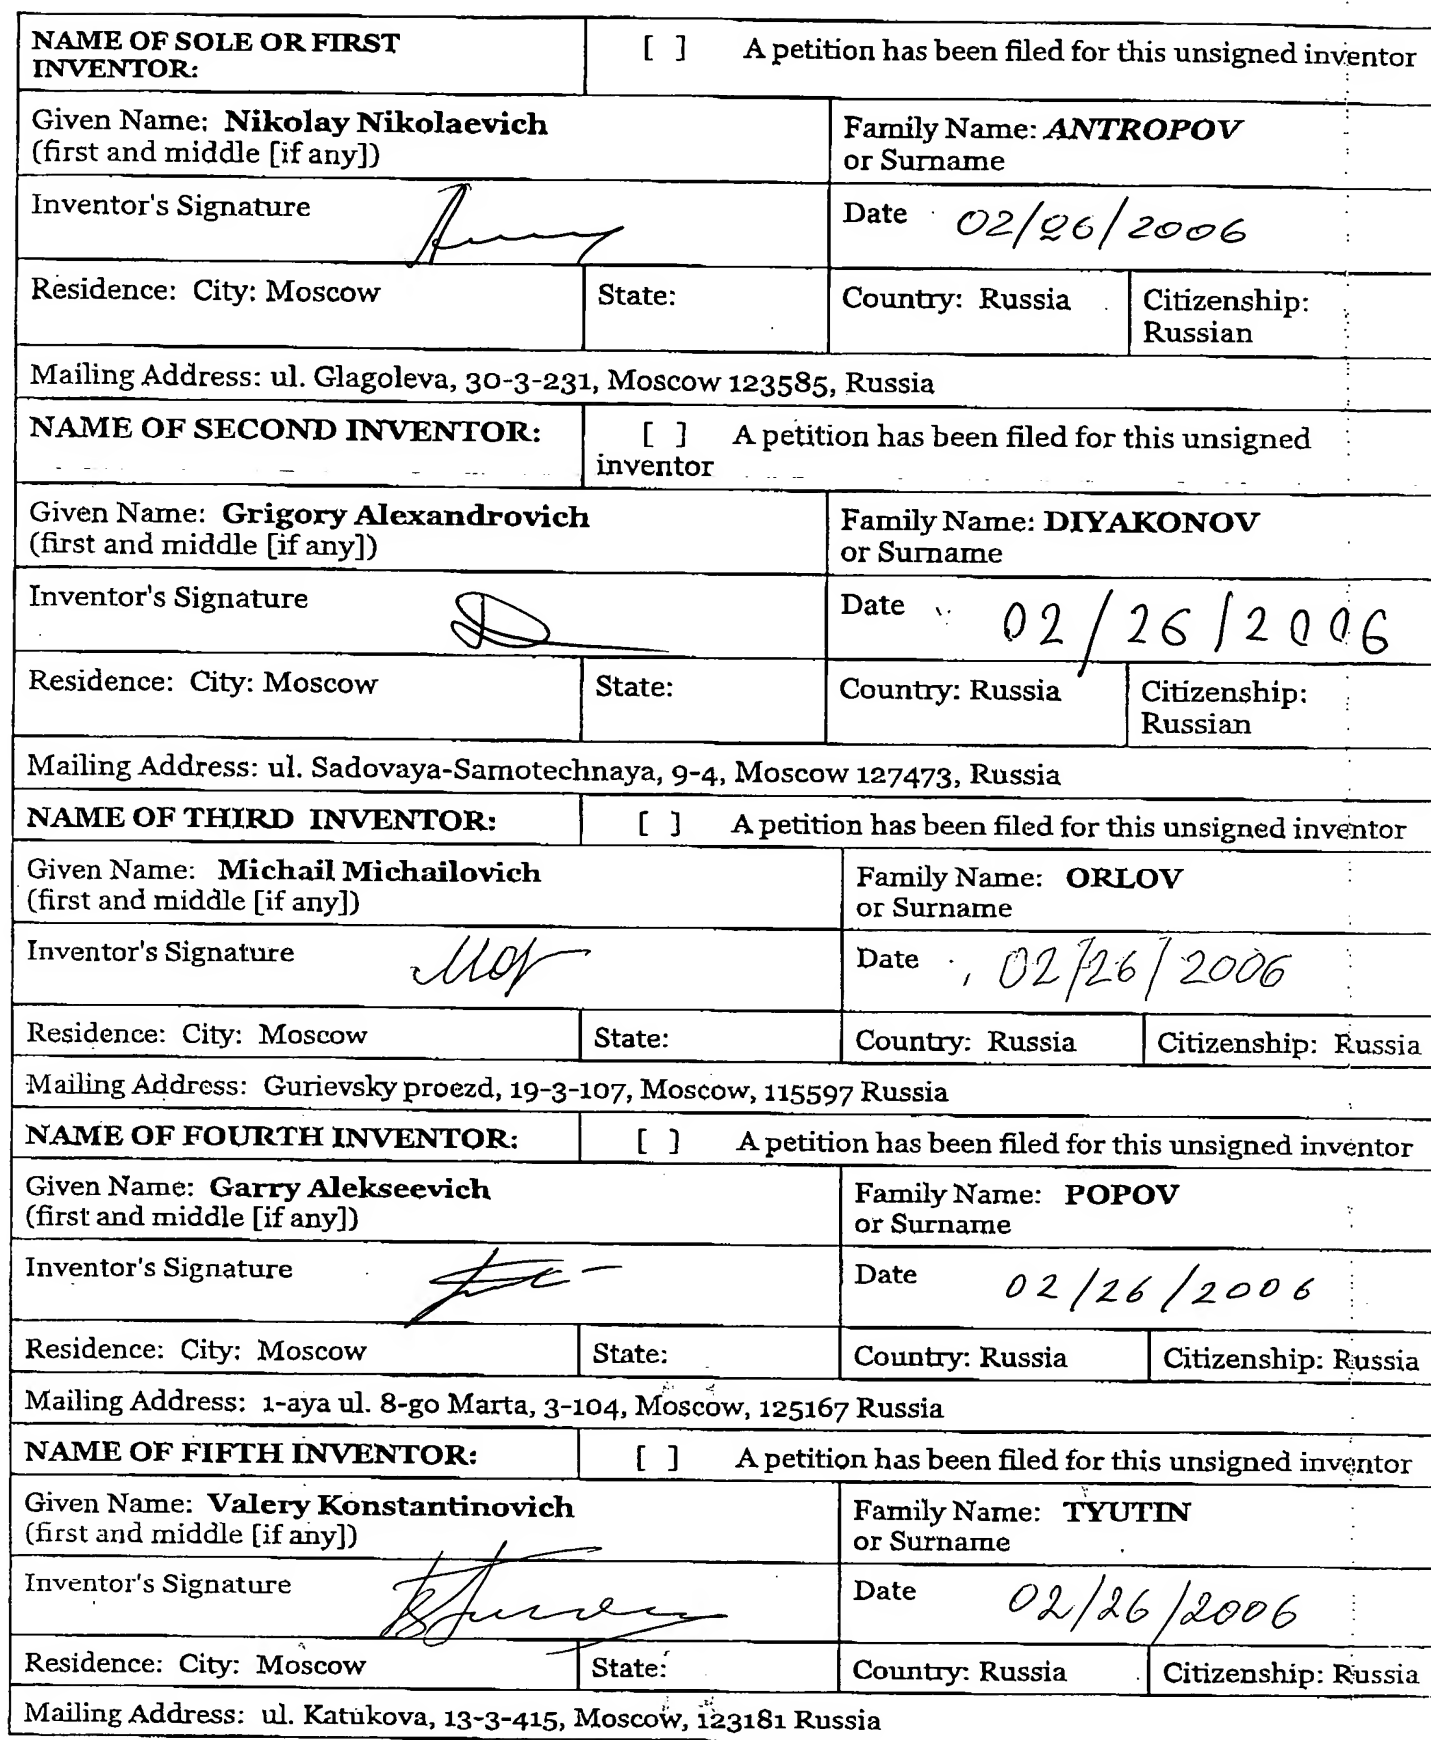 NAME OF SOLE OR FIRST INVENTOR: [ ] A petition has been filed for this unsigned inventor
Given Name: Nikolay Nikolaevich Family Name: ANTROPOV
(first and middle [if any]) or Surname
Inventor's Signature Date 02/26/2006
Residence: City: Moscow State: Country: Russia Citizenship: Russian
Mailing Address: ul. Glagoleva, 30-3-231, Moscow 123585, Russia
NAME OF SECOND INVENTOR: [ ] A petition has been filed for this unsigned
inventor
Given Name: Grigory Alexandrovich Family Name: DIYAKONOV
(first and middle [if any]) or Surname
Inventor's Signature Date 02/26/2006
Residence: City: Moscow State: Country: Russia Citizenship: Russian
Mailing Address: ul. Sadovaya-Samotechnaya, 9-4, Moscow 127473, Russia
NAME OF THIRD INVENTOR: [ ] A petition has been filed for this unsigned inventor
Given Name: Michail Michailovich Family Name: ORLOV
(first and middle [if any]) or Surname
Inventor's Signature Date 02/26/2006
Residence: City: Moscow State: Country: Russia Citizenship: Russia
Mailing Address: Gurievsky proezd, 19-3-107, Moscow, 115597 Russia
NAME OF FOURTH INVENTOR: [ ] A petition has been filed for this unsigned inventor
Given Name: Garry Alekseevich Family Name: POPOV
(first and middle [if any]) or Surname
Inventor's Signature Date 02/26/2006
Residence: City: Moscow State: Country: Russia Citizenship: Russia
Mailing Address: 1-aya ul. 8-go Marta, 3-104, Moscow, 125167 Russia
NAME OF FIFTH INVENTOR: [ ] A petition has been filed for this unsigned inventor
Given Name: Valery Konstantinovich Family Name: TYUTIN
(first and middle [if any]) or Surname
Inventor's Signature Date 02/26/2006
Residence: City: Moscow State: Country: Russia Citizenship: Russia
Mailing Address: ul. Katukova, 13-3-415, Moscow, 123181 Russia